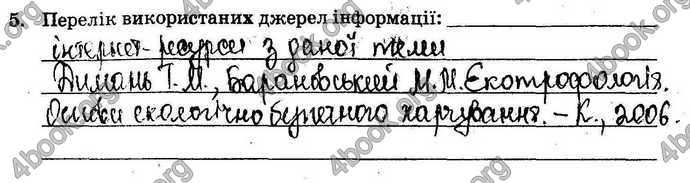 5. Перелік використаних джерел інформації:
інтернет-ресурси з даної теми
Димань Т.М., Барановський М.М. Екотрофологія.
Основи екологічно безпечного харчування. – К., 2006.
4book.org